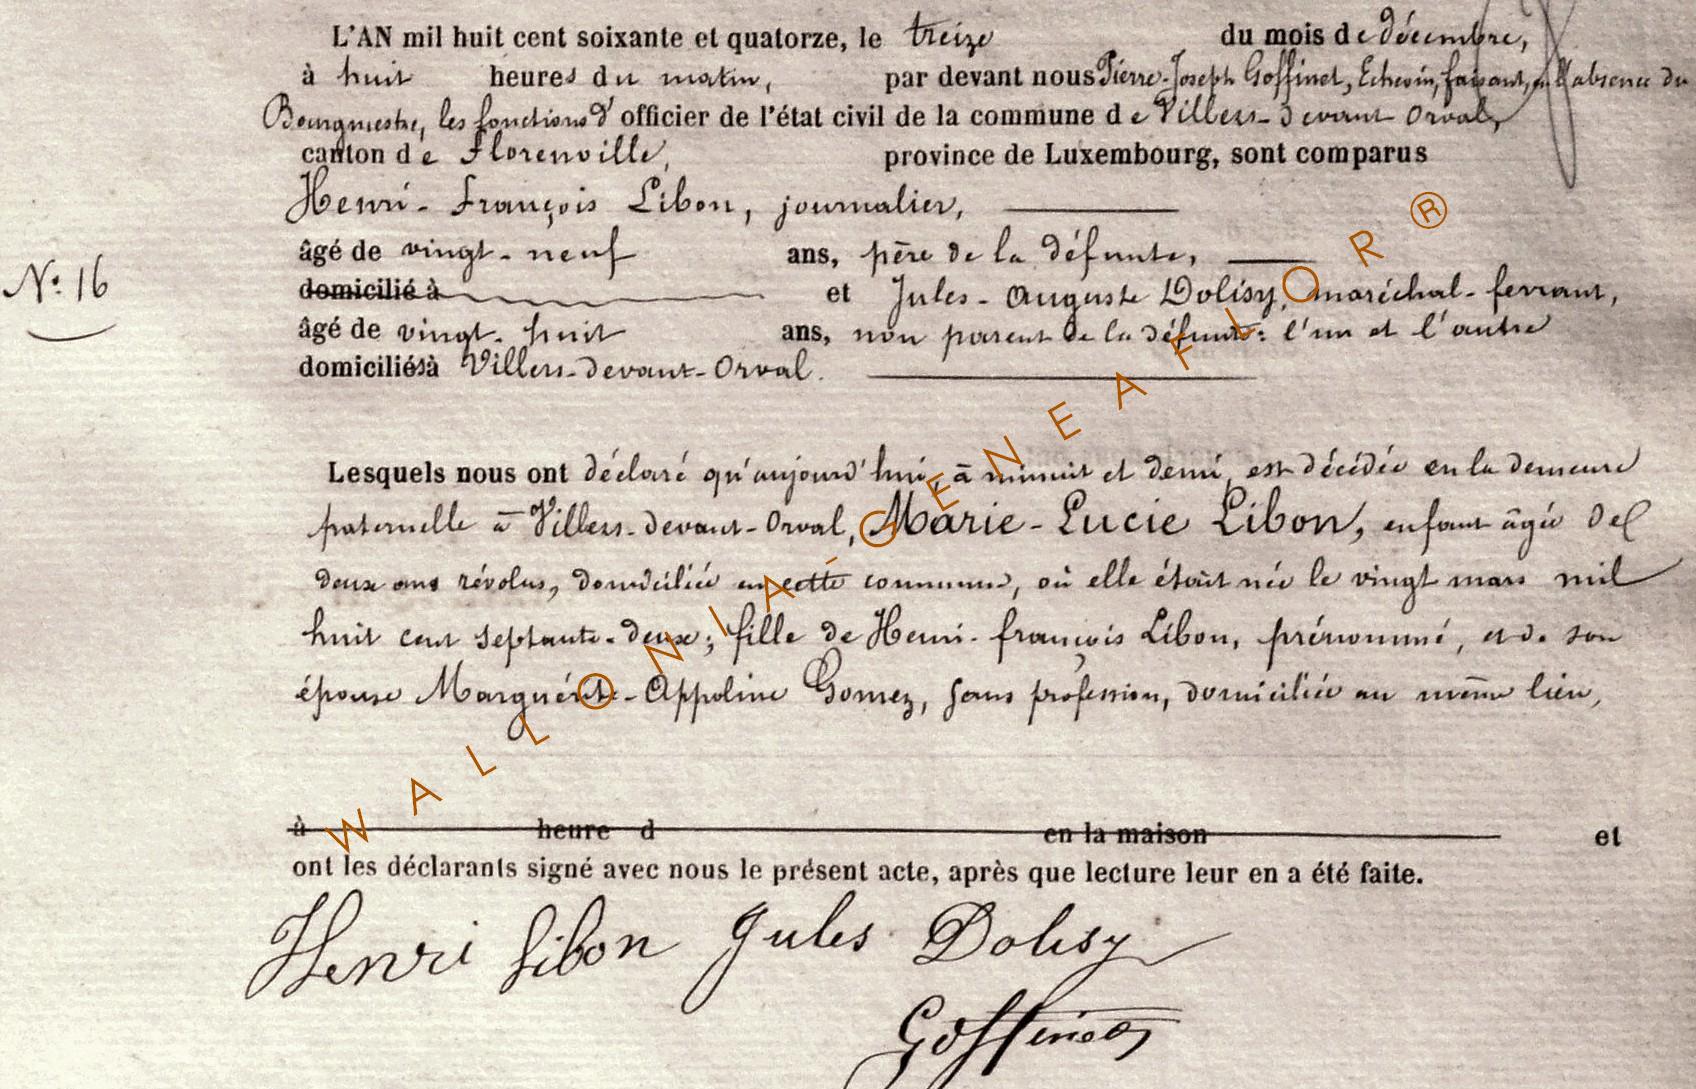 L'AN mil huit cent soixante et quatorze, le treize du mois de décembre,
à huit heures du matin, par devant nous Pierre-Joseph Goffinet, Echevin, faisant, en l'absence du
Bourgmestre, les fonctions d'officier de l'état civil de la commune de Villers-devant-Orval,
canton de Florenville, province de Luxembourg, sont comparus
Henri-François Libon, journalier,
âgé de vingt-neuf ans, père de la défunte,
N° 16
domicilié à et Jules-Auguste Dolisy, maréchal-ferrant,
âgé de vingt-huit ans, non parent de la défunte: l'un et l'autre
domiciliés à Villers-devant-Orval.
Lesquels nous ont déclaré qu'aujourd'hui, à minuit et demi, est décédée en la demeure
paternelle à Villers-devant-Orval, Marie-Lucie Libon, enfant âgée de
deux ans révolus, domiciliée en cette commune, où elle était née le vingt mars mil
huit cent septante-deux; fille de Henri-François Libon, prénommé, et de son
épouse Marguérite-Appoline Gomez, sans profession, domiciliée au même lieu,
à heure d en la maison et
ont les déclarants signé avec nous le présent acte, après que lecture leur en a été faite.
Henri Libon Jules Dolisy
Goffinet
WALLONIA-GENEAFLOR®